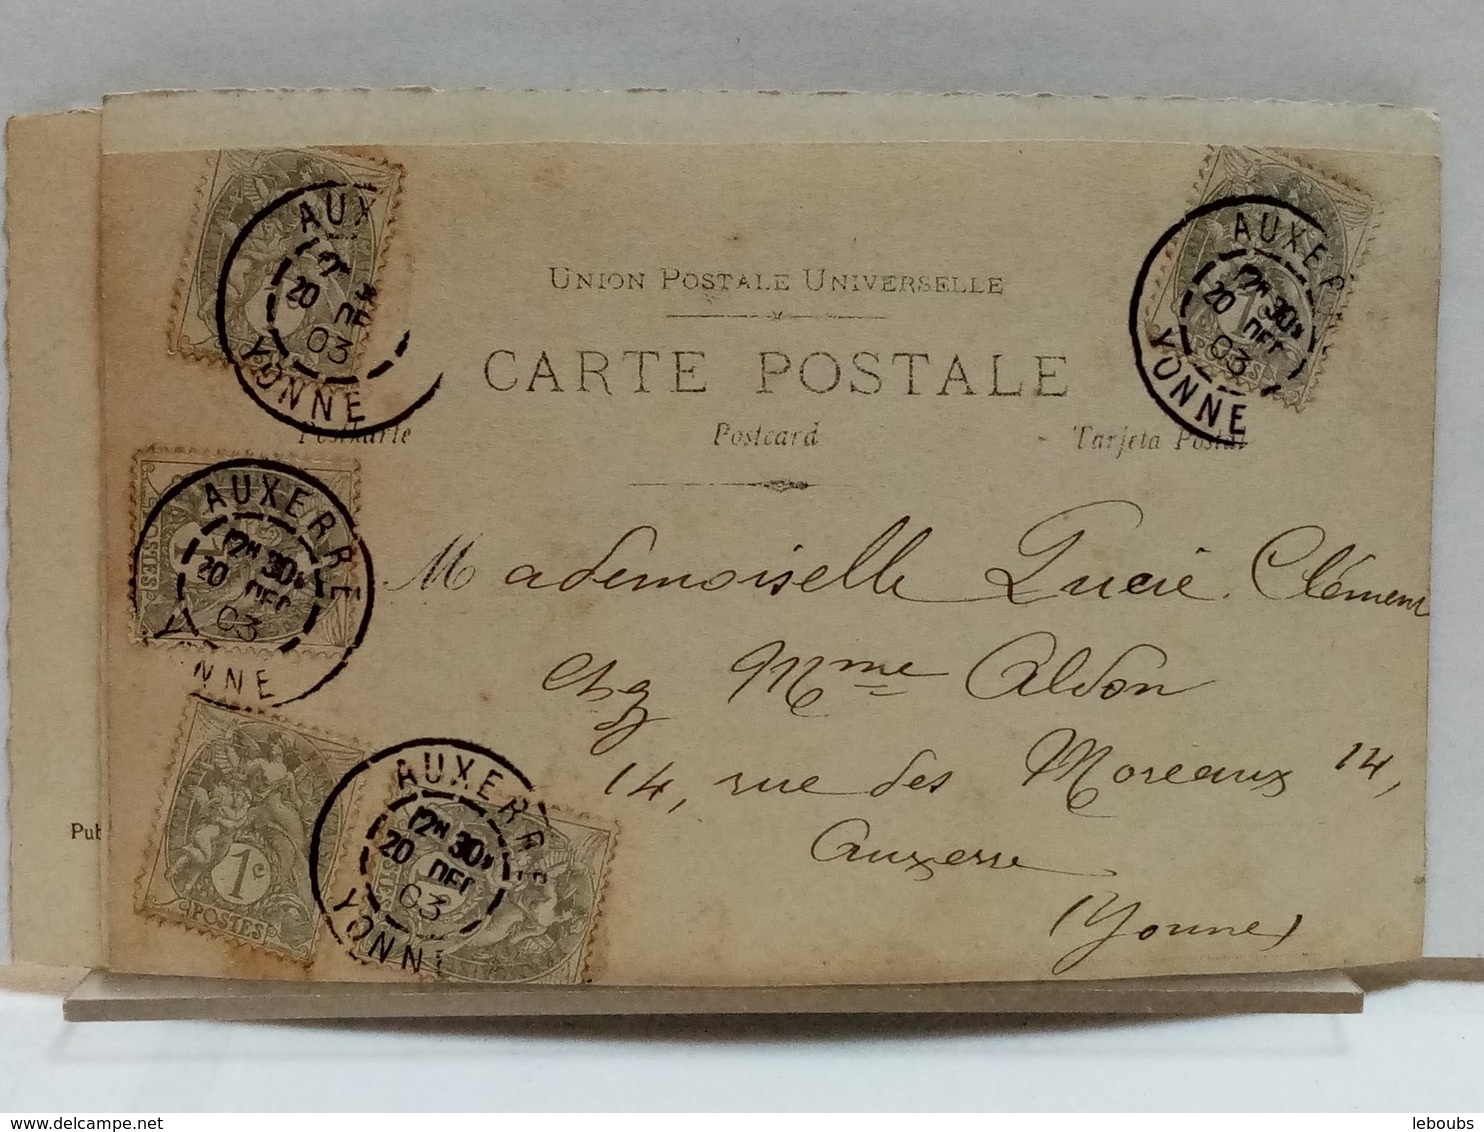 UNION POSTALE UNIVERSELLE
CARTE POSTALE
Postkarte Postcard Tarjeta Postal
Mademoiselle Lucie Clément
chez Mme Aldon
14, rue des Moreaux 14,
Auxerre
(Yonne)
AUX
20 DE
03
YONNE
AUXER
12H 30
20 DEC
03
YONNE
1c
POSTES
AUXERRE
12H 30
20 DEC
03
YONNE
POSTES
1c
POSTES
AUXERRE
12H 30
20 DEC
03
YONNE
Pub
delcampe.net
leboubs